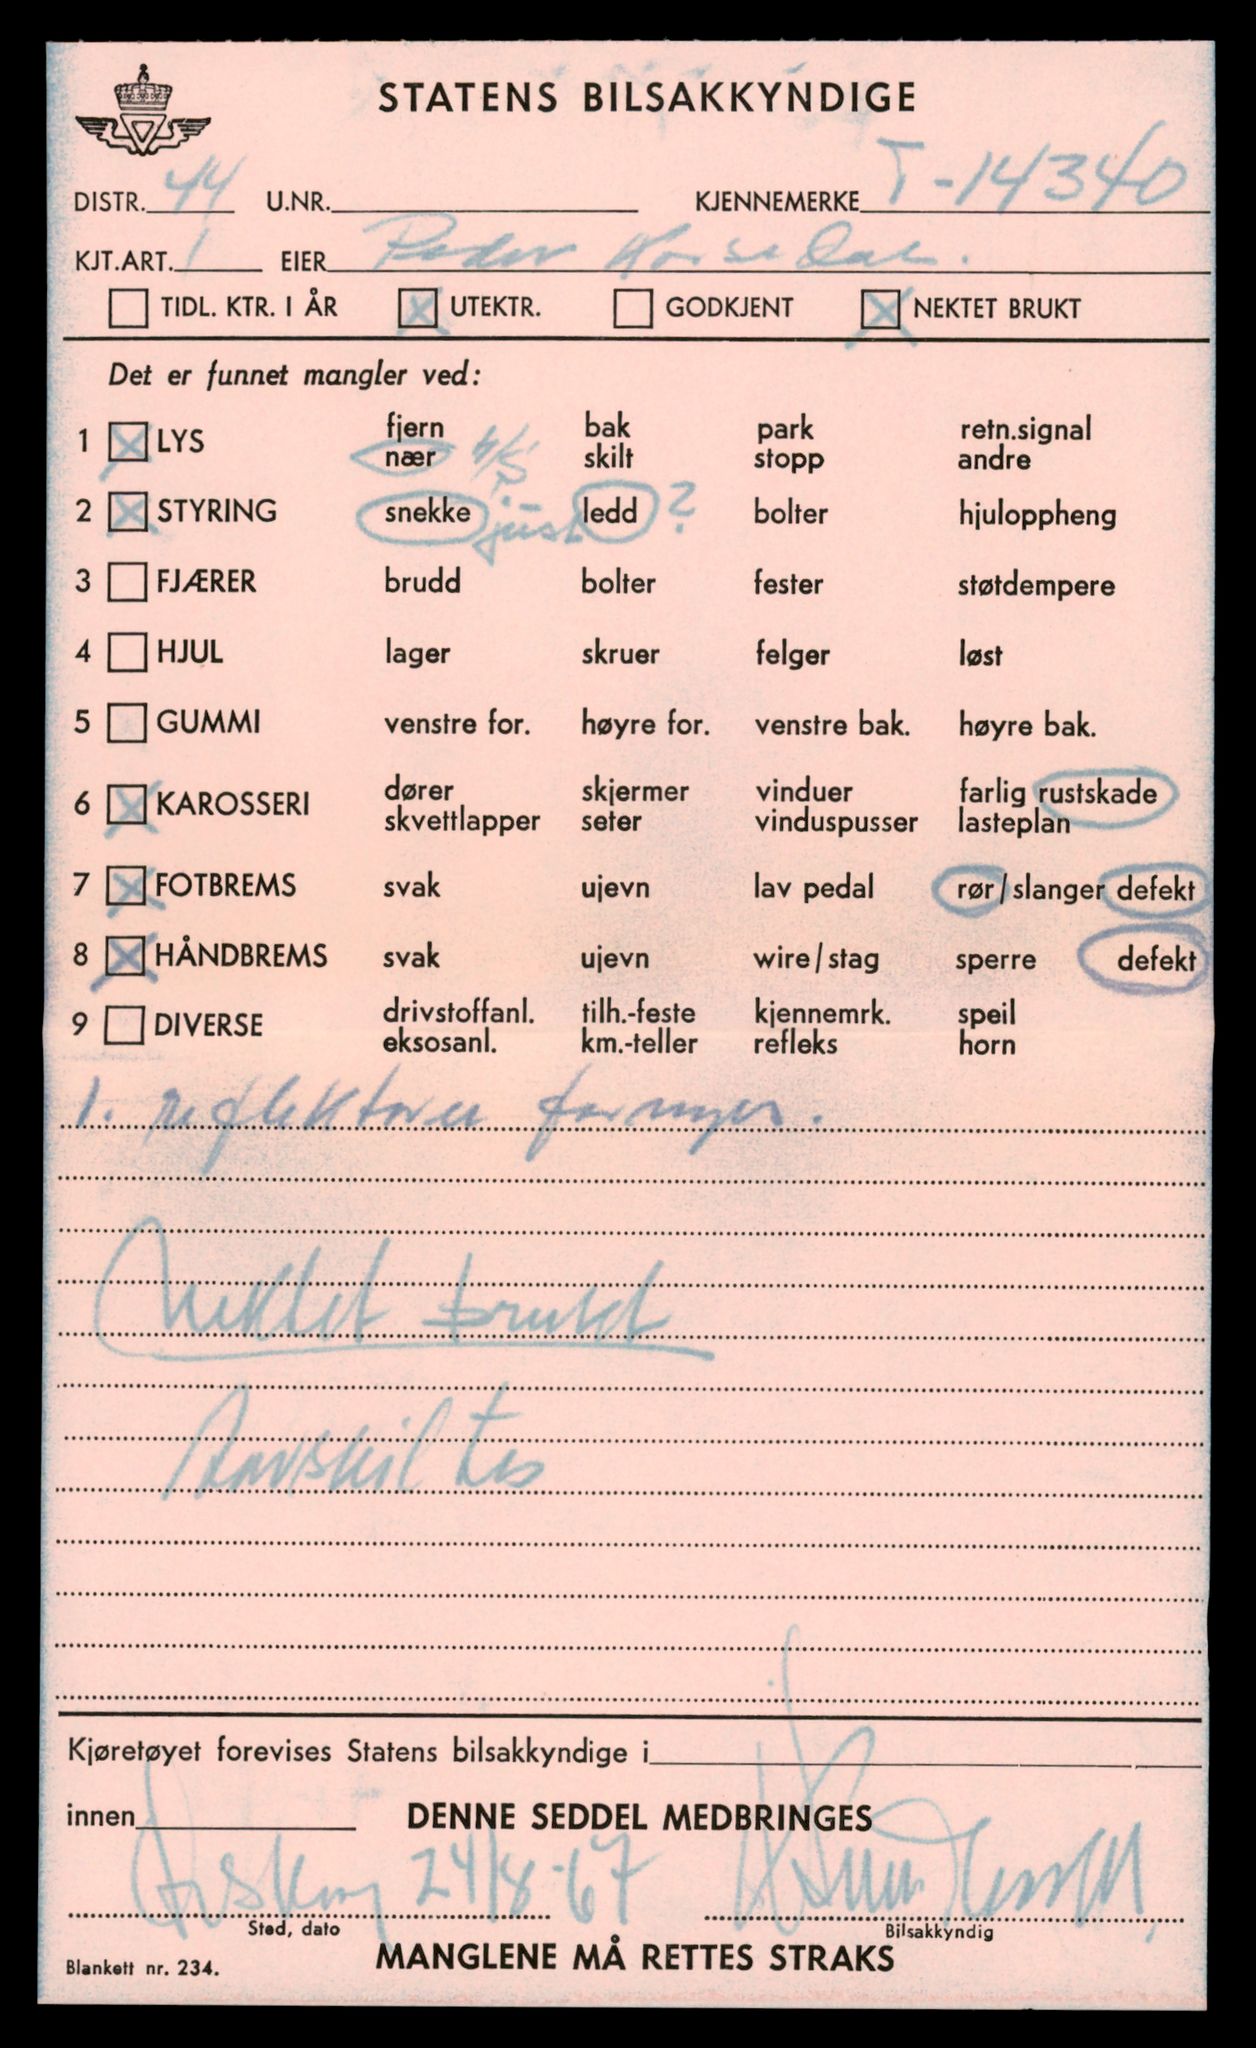 STATENS BILSAKKYNDIGE
DISTR. 44 U.NR. KJENNEMERKE T-14340
KJT.ART. 1 EIER Peder
TIDL. KTR. I ÅR UTEKTR. GODKJENT NEKTET BRUKT
Det er funnet mangler ved:
1 LYS fjern bak park retn.signal
nær 4/5 skilt stopp andre
2 STYRING snekke just ledd ? bolter hjuloppheng
3 FJÆRER brudd bolter fester støtdempere
4 HJUL lager skruer felger løst
5 GUMMI venstre for. høyre for. venstre bak. høyre bak.
6 KAROSSERI dører skjermer vinduer farlig rustskade
skvettlapper seter vinduspusser lasteplan
7 FOTBREMS svak ujevn lav pedal rør/slanger defekt
8 HÅNDBREMS svak ujevn wire/stag sperre defekt
9 DIVERSE drivstoffanl. tilh.-feste kjennemrk. speil
eksosanl. km.-teller refleks horn
1. reflektorer fornyes.
Nektet brukt
Avskiltes
Kjøretøyet forevises Statens bilsakkyndige i
innen DENNE SEDDEL MEDBRINGES
24/8-67
Sted, dato Bilsakkyndig
Blankett nr. 234. MANGLENE MÅ RETTES STRAKS